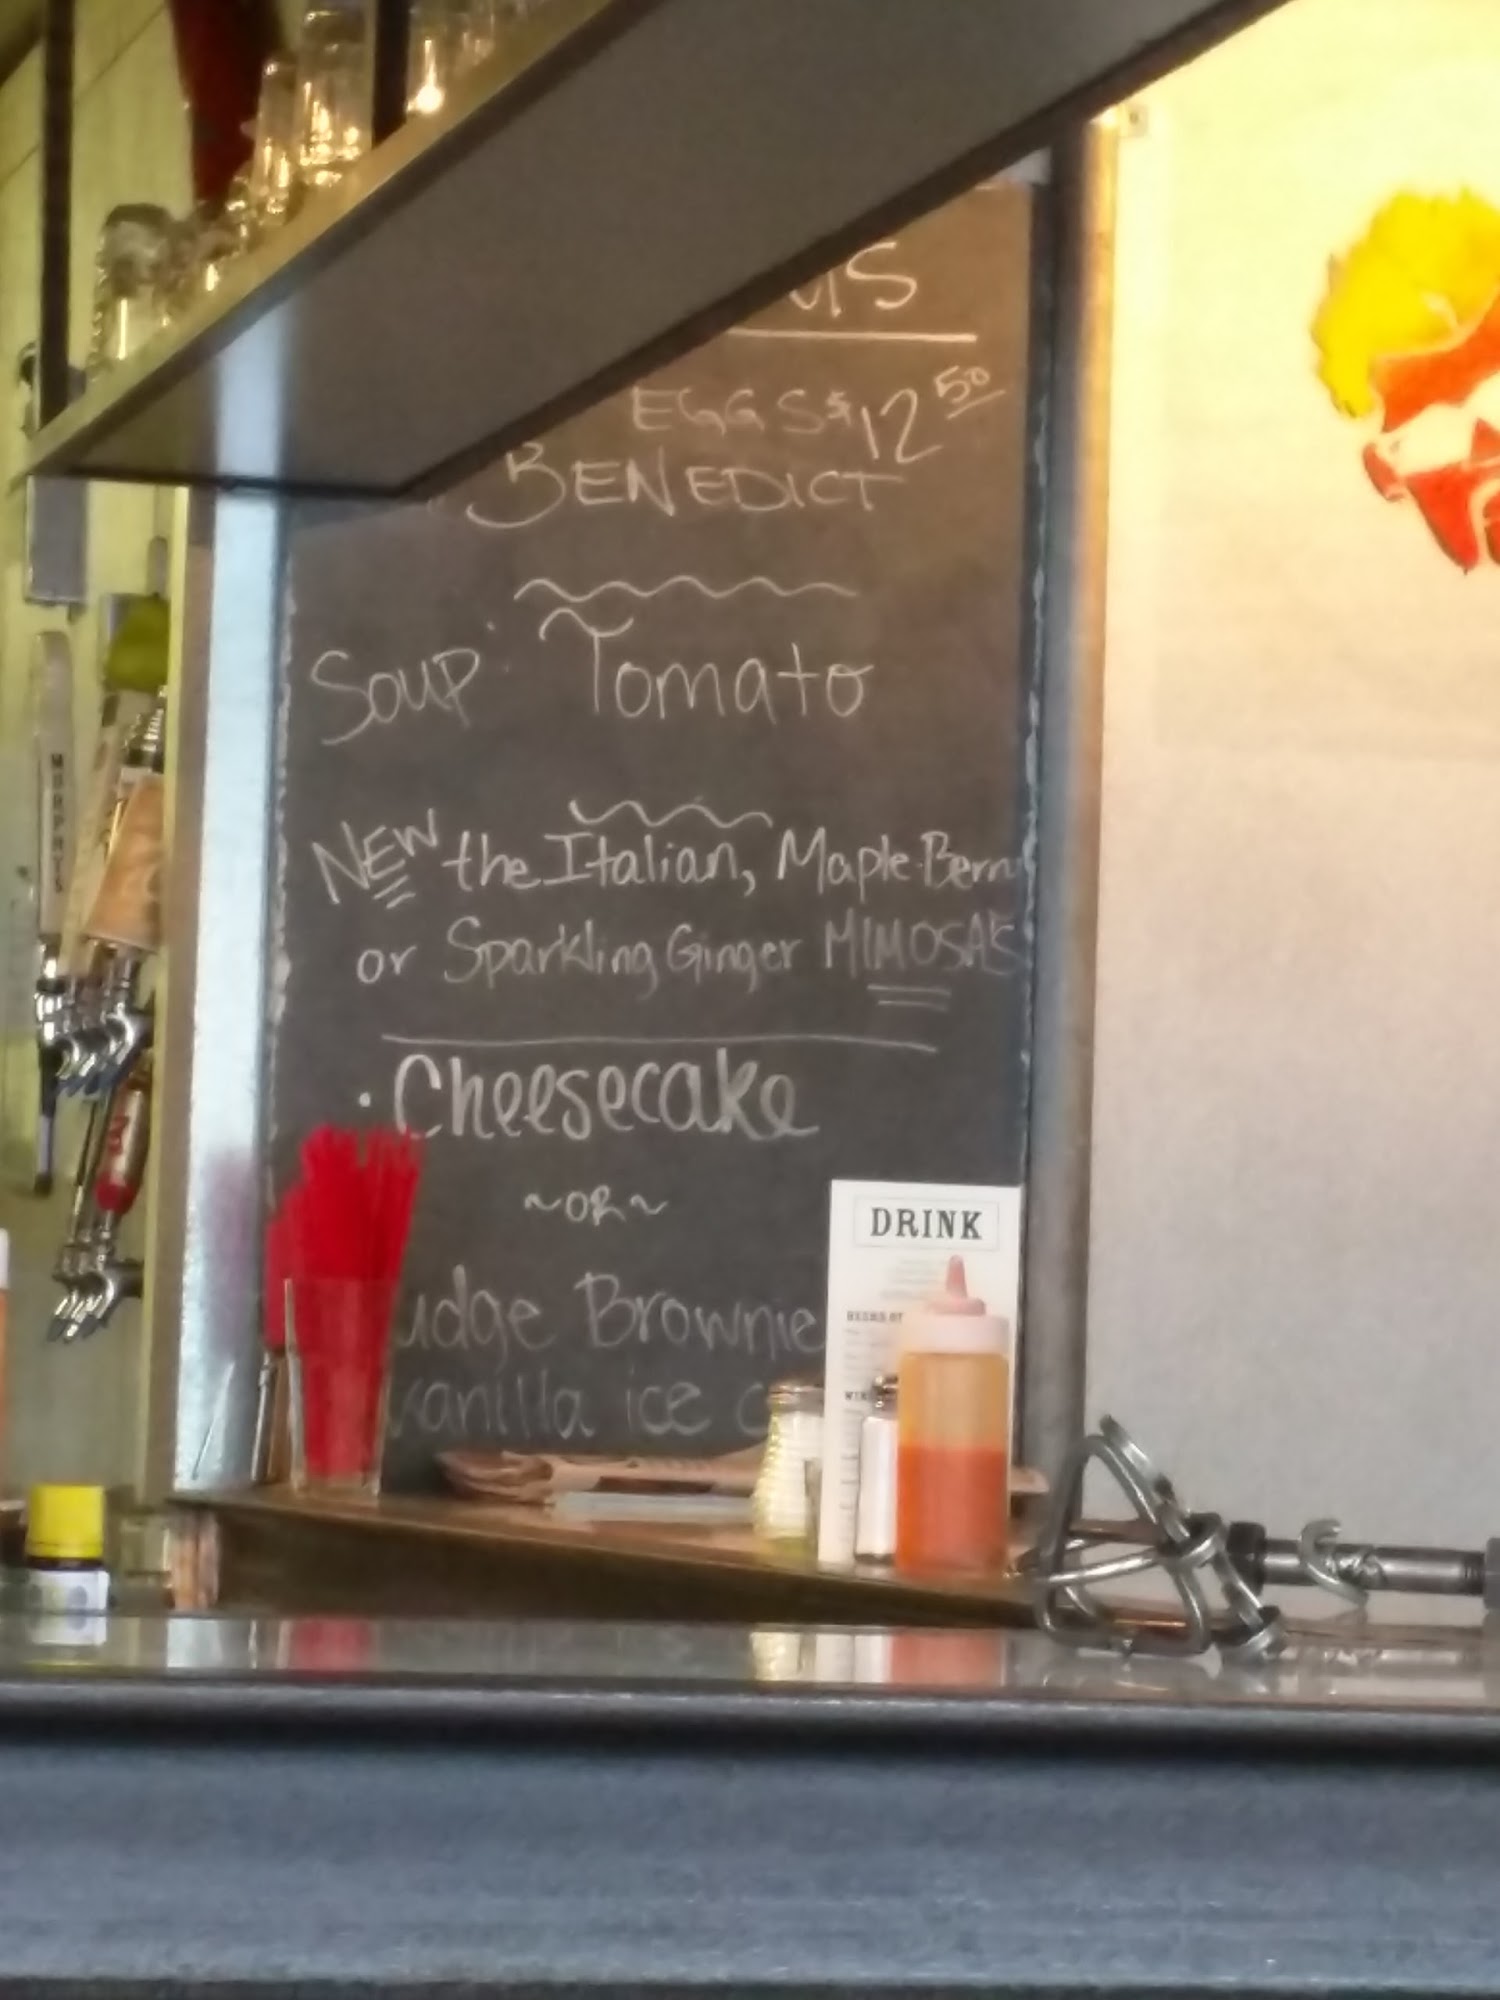 EGGS $12 50
BENEDICT
Soup: Tomato
NEW the Italian, Maple Bern
or Sparkling Ginger MIMOSA'S
· Cheesecake
~OR~
udge Brownie
vanilla ice c
DRINK